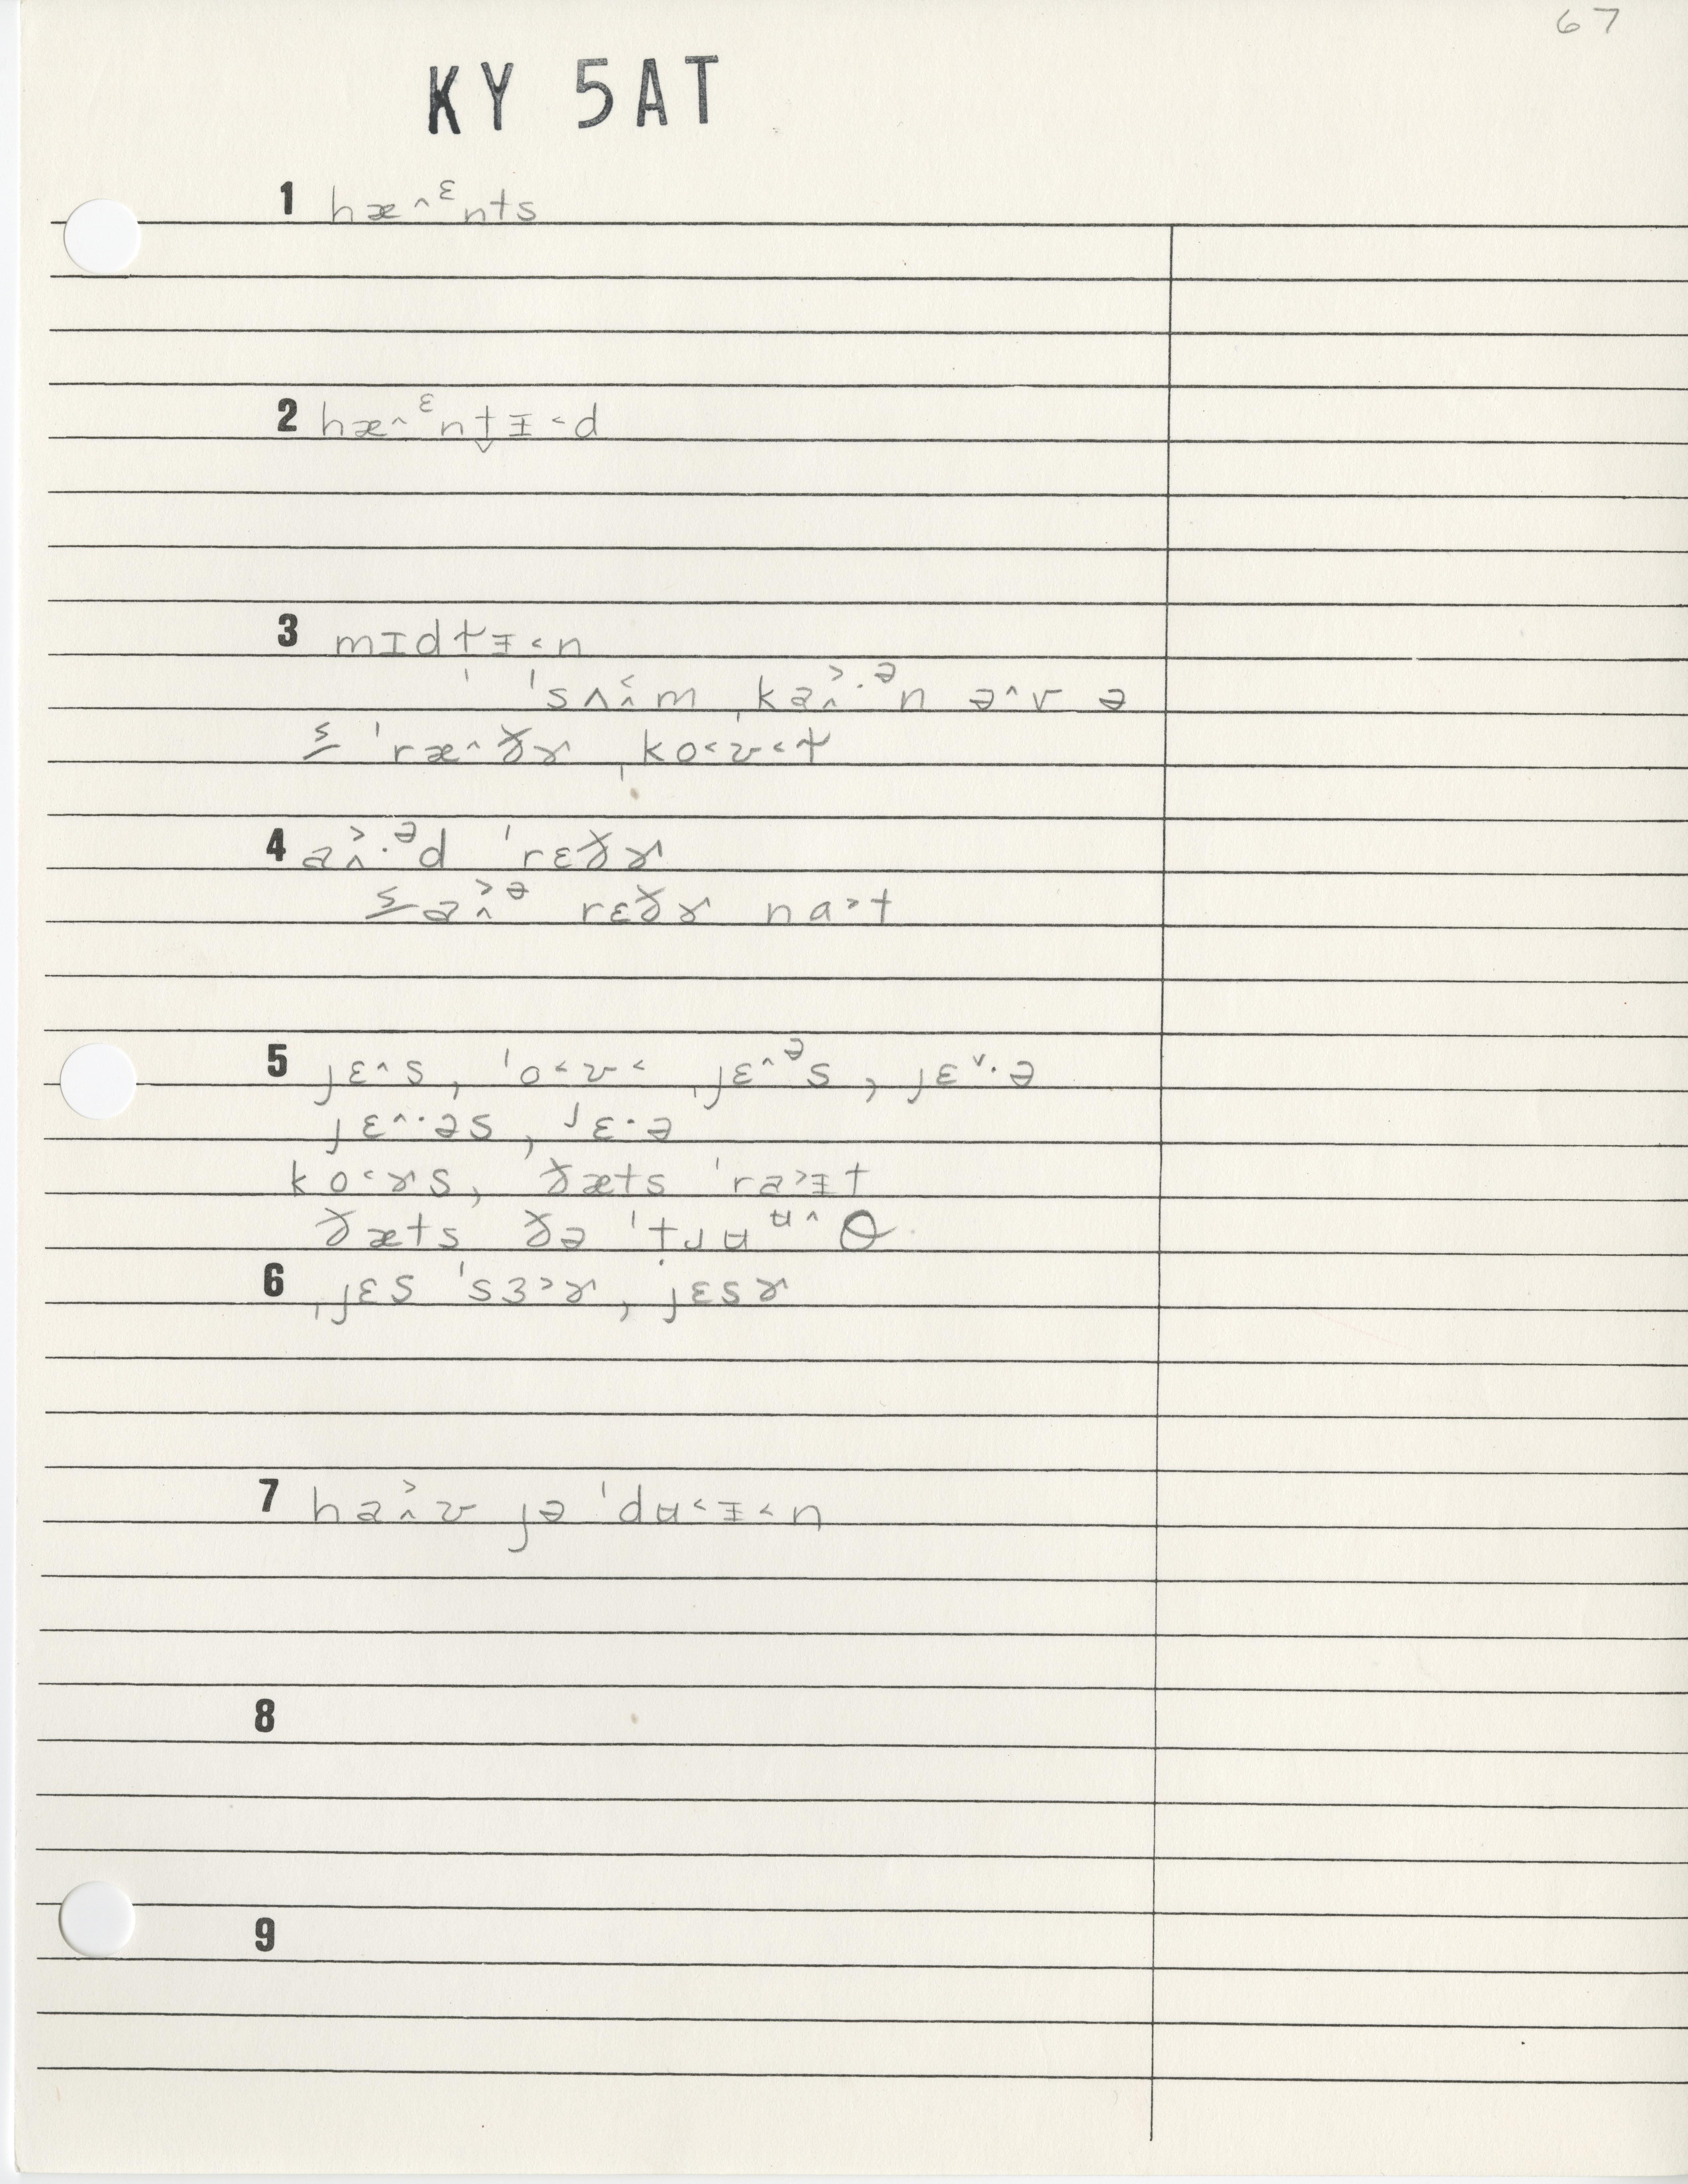 67
KY 5AT
1 hæ^ᵋnts
2 hæ^ᵋnt̬ɨ˂d
3 mɪdtɨ˂n
ˈsʌ˂̭m ˌka˃̭·ᵊn ə^v ə
ˈræ^ðɚ ˌko˂ʊ˂t
4 a˃̭·ᵊd ˈrɛðɚ
a˃̭ᵊ rɛðɚ nɑ˃t
5 jɛ^s, ˈo˂ʊ˂ ˌjɛ^ᵊs, jɛ˅·ə
jɛ^·əs, jɛ·ə
ko˂ɚs, ðæts ˈra˃ɨt
ðæts ðə ˈtɹʉᶶ^θ
6 ˌjɛs ˈsɜ˃ɚ, jɛsɚ
7 ha˃̭ʊ jə ˈdʉ˂ɨ˂n
8
9